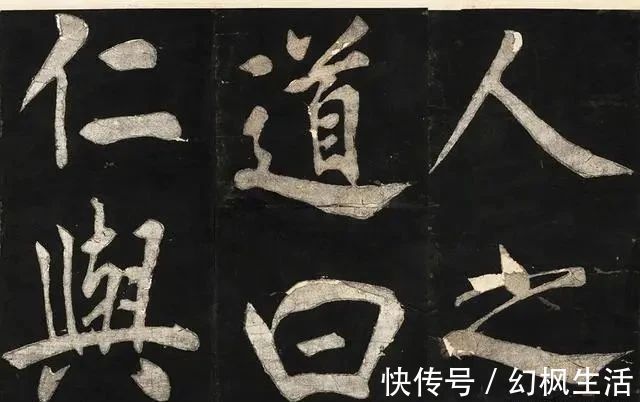 人之
道曰
仁與
快传号 / 幻枫生活